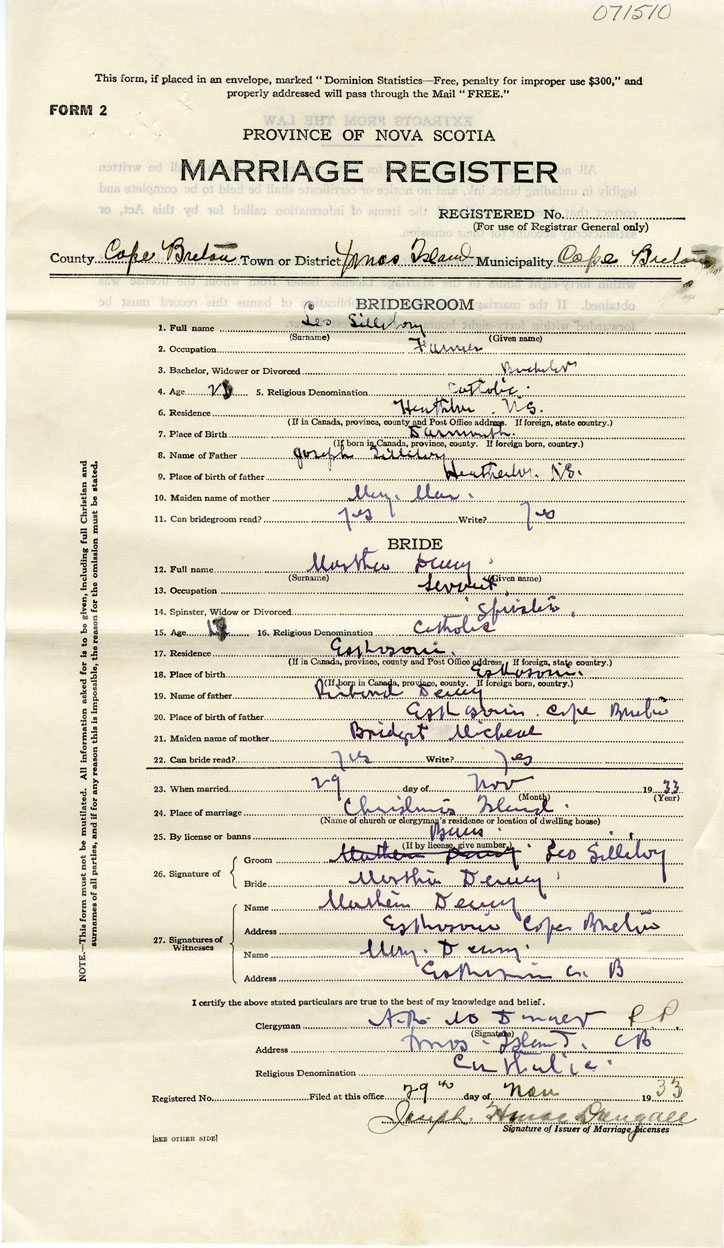 071510
This form, if placed in an envelope, marked "Dominion Statistics—Free, penalty for improper use $300," and
properly addressed will pass through the Mail "FREE."
FORM 2
PROVINCE OF NOVA SCOTIA
MARRIAGE REGISTER
REGISTERED No.
(For use of Registrar General only)
County Cape Breton Town or District Xmas Island Municipality Cape Breton
BRIDEGROOM
1. Full name Leo Gillivory
(Surname) (Given name)
2. Occupation Farmer
3. Bachelor, Widower or Divorced Bachelor
4. Age 5. Religious Denomination Catholic.
6. Residence N.S.
(If in Canada, province, county and Post Office address. If foreign, state country.)
7. Place of Birth
(If born in Canada, province, county. If foreign born, country.)
8. Name of Father Joseph Gillivory
9. Place of birth of father N.S.
10. Maiden name of mother Mary
11. Can bridegroom read? yes Write? yes
BRIDE
12. Full name Martha Denny
(Surname) (Given name)
13. Occupation Servant
14. Spinster, Widow or Divorced Spinster
15. Age 16. Religious Denomination Catholic
17. Residence Eskasoni.
(If in Canada, province, county and Post Office address. If foreign, state country.)
18. Place of birth Eskasoni.
(If born in Canada, province, county. If foreign born, country.)
19. Name of father Denny
20. Place of birth of father Eskasoni Cape Breton
21. Maiden name of mother Bridget Micheal
22. Can bride read? yes Write? yes
23. When married 29 day of Nov 19 33
(Month) (Year)
24. Place of marriage Christmas Island.
(Name of church or clergyman's residence or location of dwelling house)
25. By license or banns Banns
(If by license, give number)
26. Signature of Groom Leo Gillivory
Bride Martha Denny
27. Signatures of Witnesses
Name Denny
Address Eskasoni Cape Breton
Name Mary Denny
Address Eskasoni C. B
NOTE.—This form must not be mutilated. All information asked for is to be given, including full Christian and
surnames of all parties, and if for any reason this is impossible, the reason for the omission must be stated.
I certify the above stated particulars are true to the best of my knowledge and belief.
Clergyman P.P.
(Signature)
Address Xmas Island. CB
Religious Denomination Catholic.
Registered No. Filed at this office 29th day of Nov 19 33
Joseph Dougall
Signature of Issuer of Marriage Licenses
[SEE OTHER SIDE]